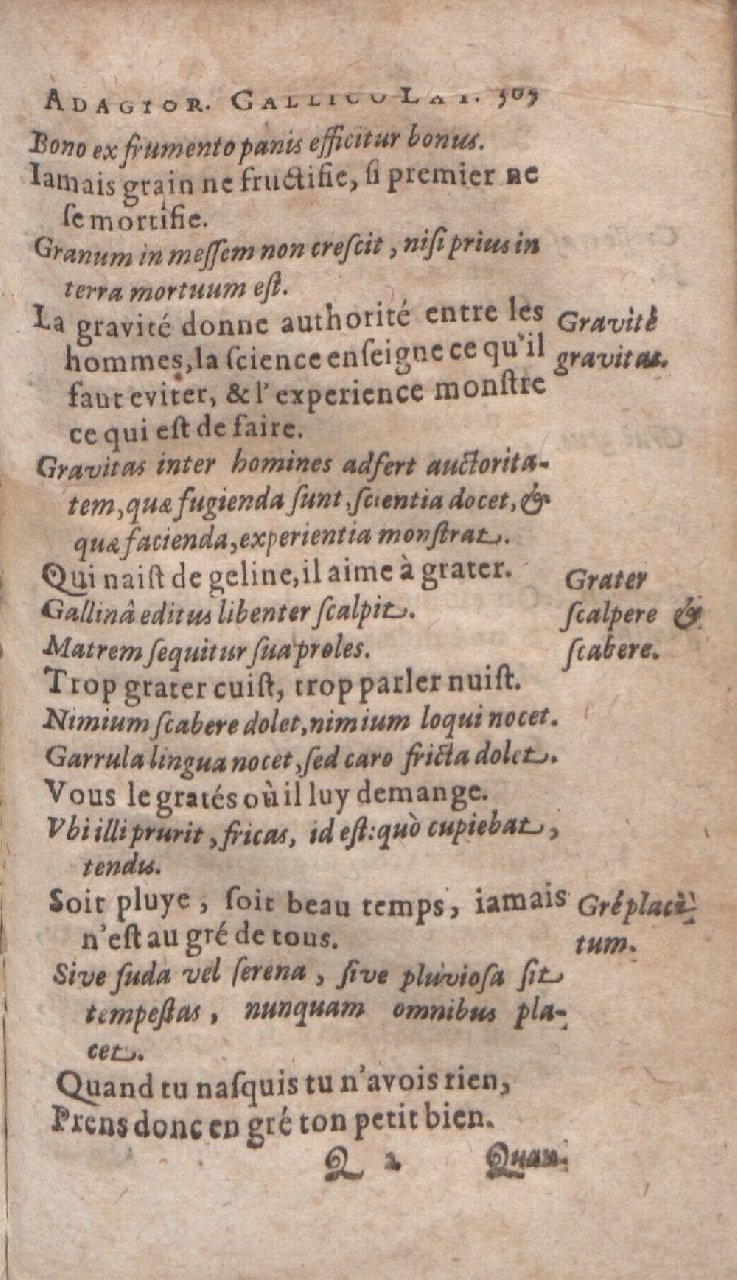 ADAGIOR. GALLICO LAT. 505
Bono ex frumento panis efficitur bonus.
Iamais grain ne fructifie, si premier ne
se mortifie.
Granum in messem non crescit, nisi prius in
terra mortuum est.
La gravité donne authorité entre les
hommes, la science enseigne ce qu'il
faut eviter, & l'experience monstre
ce qui est de faire.
Gravité
gravitas.
Gravitas inter homines adfert auctorita-
tem, quæ fugienda sunt, scientia docet, &
quæ facienda, experientia monstrat.
Qui naist de geline, il aime à grater.
Gallinâ editus libenter scalpit.
Matrem sequitur sua proles.
Grater
scalpere &
scabere.
Trop grater cuist, trop parler nuist.
Nimium scabere dolet, nimium loqui nocet.
Garrula lingua nocet, sed caro fricta dolet.
Vous le gratés où il luy demange.
Vbi illi prurit, fricas, id est: quò cupiebat,
tendis.
Soit pluye, soit beau temps, iamais
n'est au gré de tous.
Gré placi-
tum.
Sive suda vel serena, sive pluviosa sit
tempestas, nunquam omnibus pla-
cet.
Quand tu nasquis tu n'avois rien,
Prens donc en gré ton petit bien.
Q 2 Quan-